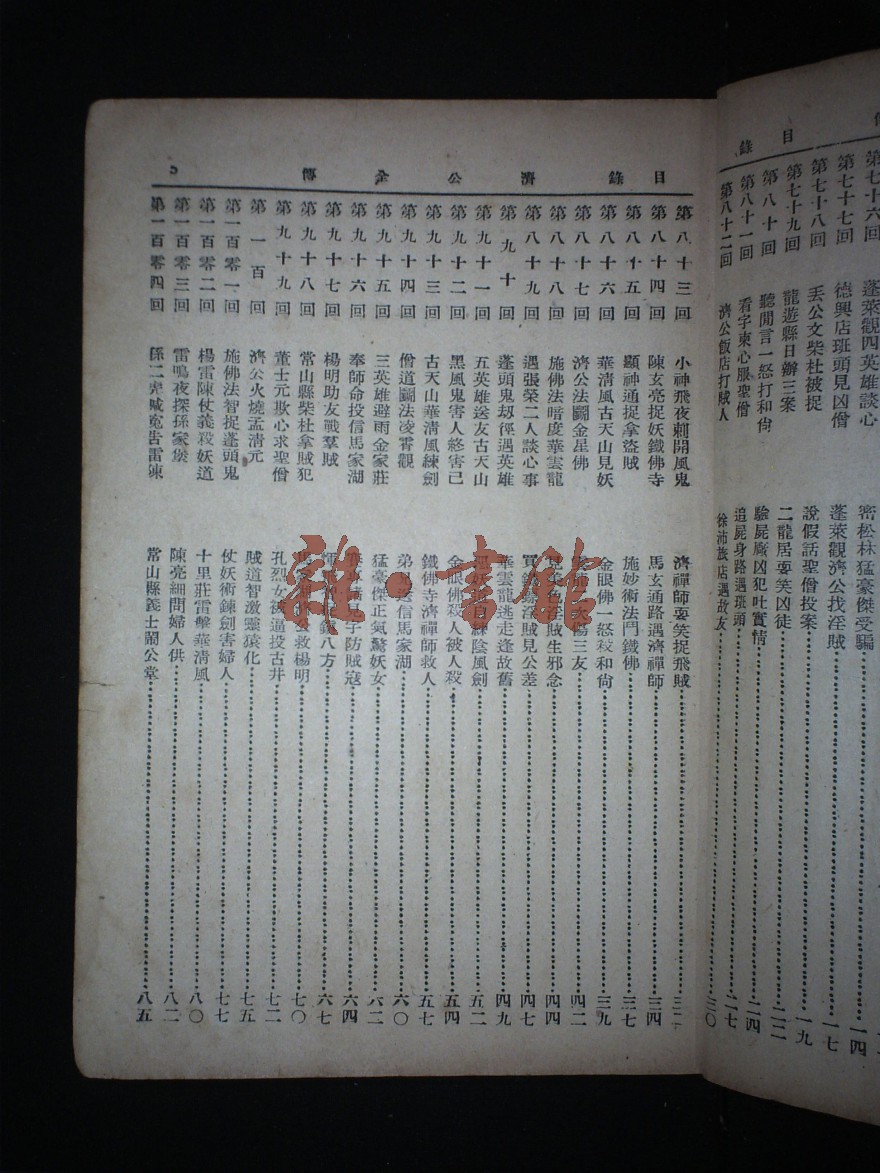 目錄
第七十六回 蓬萊觀四英雄談心 密松林猛豪傑受騙
第七十七回 德興店班頭見凶僧 蓬萊觀濟公找淫賊 一四
第七十八回 丢公文柴杜被捉 說假話聖僧投案 一七
第七十九回 龍遊縣日辦三案 二龍居耍笑凶徒 一九
第八十回 聽閒言一怒打和尙 驗屍廠凶犯吐實情 二二
第八十一回 看字柬心服聖僧 追屍身路遇班頭 二四
第八十二回 濟公飯店打賊人 徐沛旅店遇故友 二七
三〇
目錄 濟公全傳 5
第八十三回 小神飛夜刺開風鬼 濟禪師耍笑捉飛賊
第八十四回 陳玄亮捉妖鐵佛寺 馬玄通路遇濟禪師 三四
第八十五回 顯神通捉拿盜賊 施妙術法鬥鐵佛 三七
第八十六回 華清風古天山見妖 金眼佛一怒殺和尙 三九
第八十七回 濟公法鬭金星佛 三友 四二
第八十八回 施佛法暗度華雲龍 色淫賊生邪念 四四
第八十九回 遇張榮二人談心事 淫賊見公差 四七
第九十回 蓬頭鬼刼徑遇英雄 華雲龍逃走逢故舊 四九
第九十一回 五英雄送友古天山 陰風劍 五二
第九十二回 黑風鬼害人終害己 金眼佛殺人被人殺 五四
第九十三回 古天山華清風練劍 鐵佛寺濟禪師救人 五七
第九十四回 僧道鬭法凌霄觀 弟 信馬家湖 六〇
第九十五回 三英雄避雨金家莊 猛豪傑正氣驚妖女 六二
第九十六回 奉師命投信馬家湖 防賊寇 六四
第九十七回 楊明助友戰羣賊 八方 六七
第九十八回 常山縣柴杜拿賊犯 公救楊明 七〇
第九十九回 董士元欺心求聖僧 孔烈女被逼投古井 七二
第一百回 濟公火燒孟清元 賊道智激靈猿化 七五
第一百零一回 施佛法智捉蓬頭鬼 仗妖術鍊劍害婦人 七七
第一百零二回 楊雷陳仗義殺妖道 十里莊雷擊華清風 八〇
第一百零三回 雷鳴夜探孫家堡 陳亮細問婦人供 八二
第一百零四回 孫二虎喊寃告雷陳 常山縣義士鬧公堂 八五
雜·書館